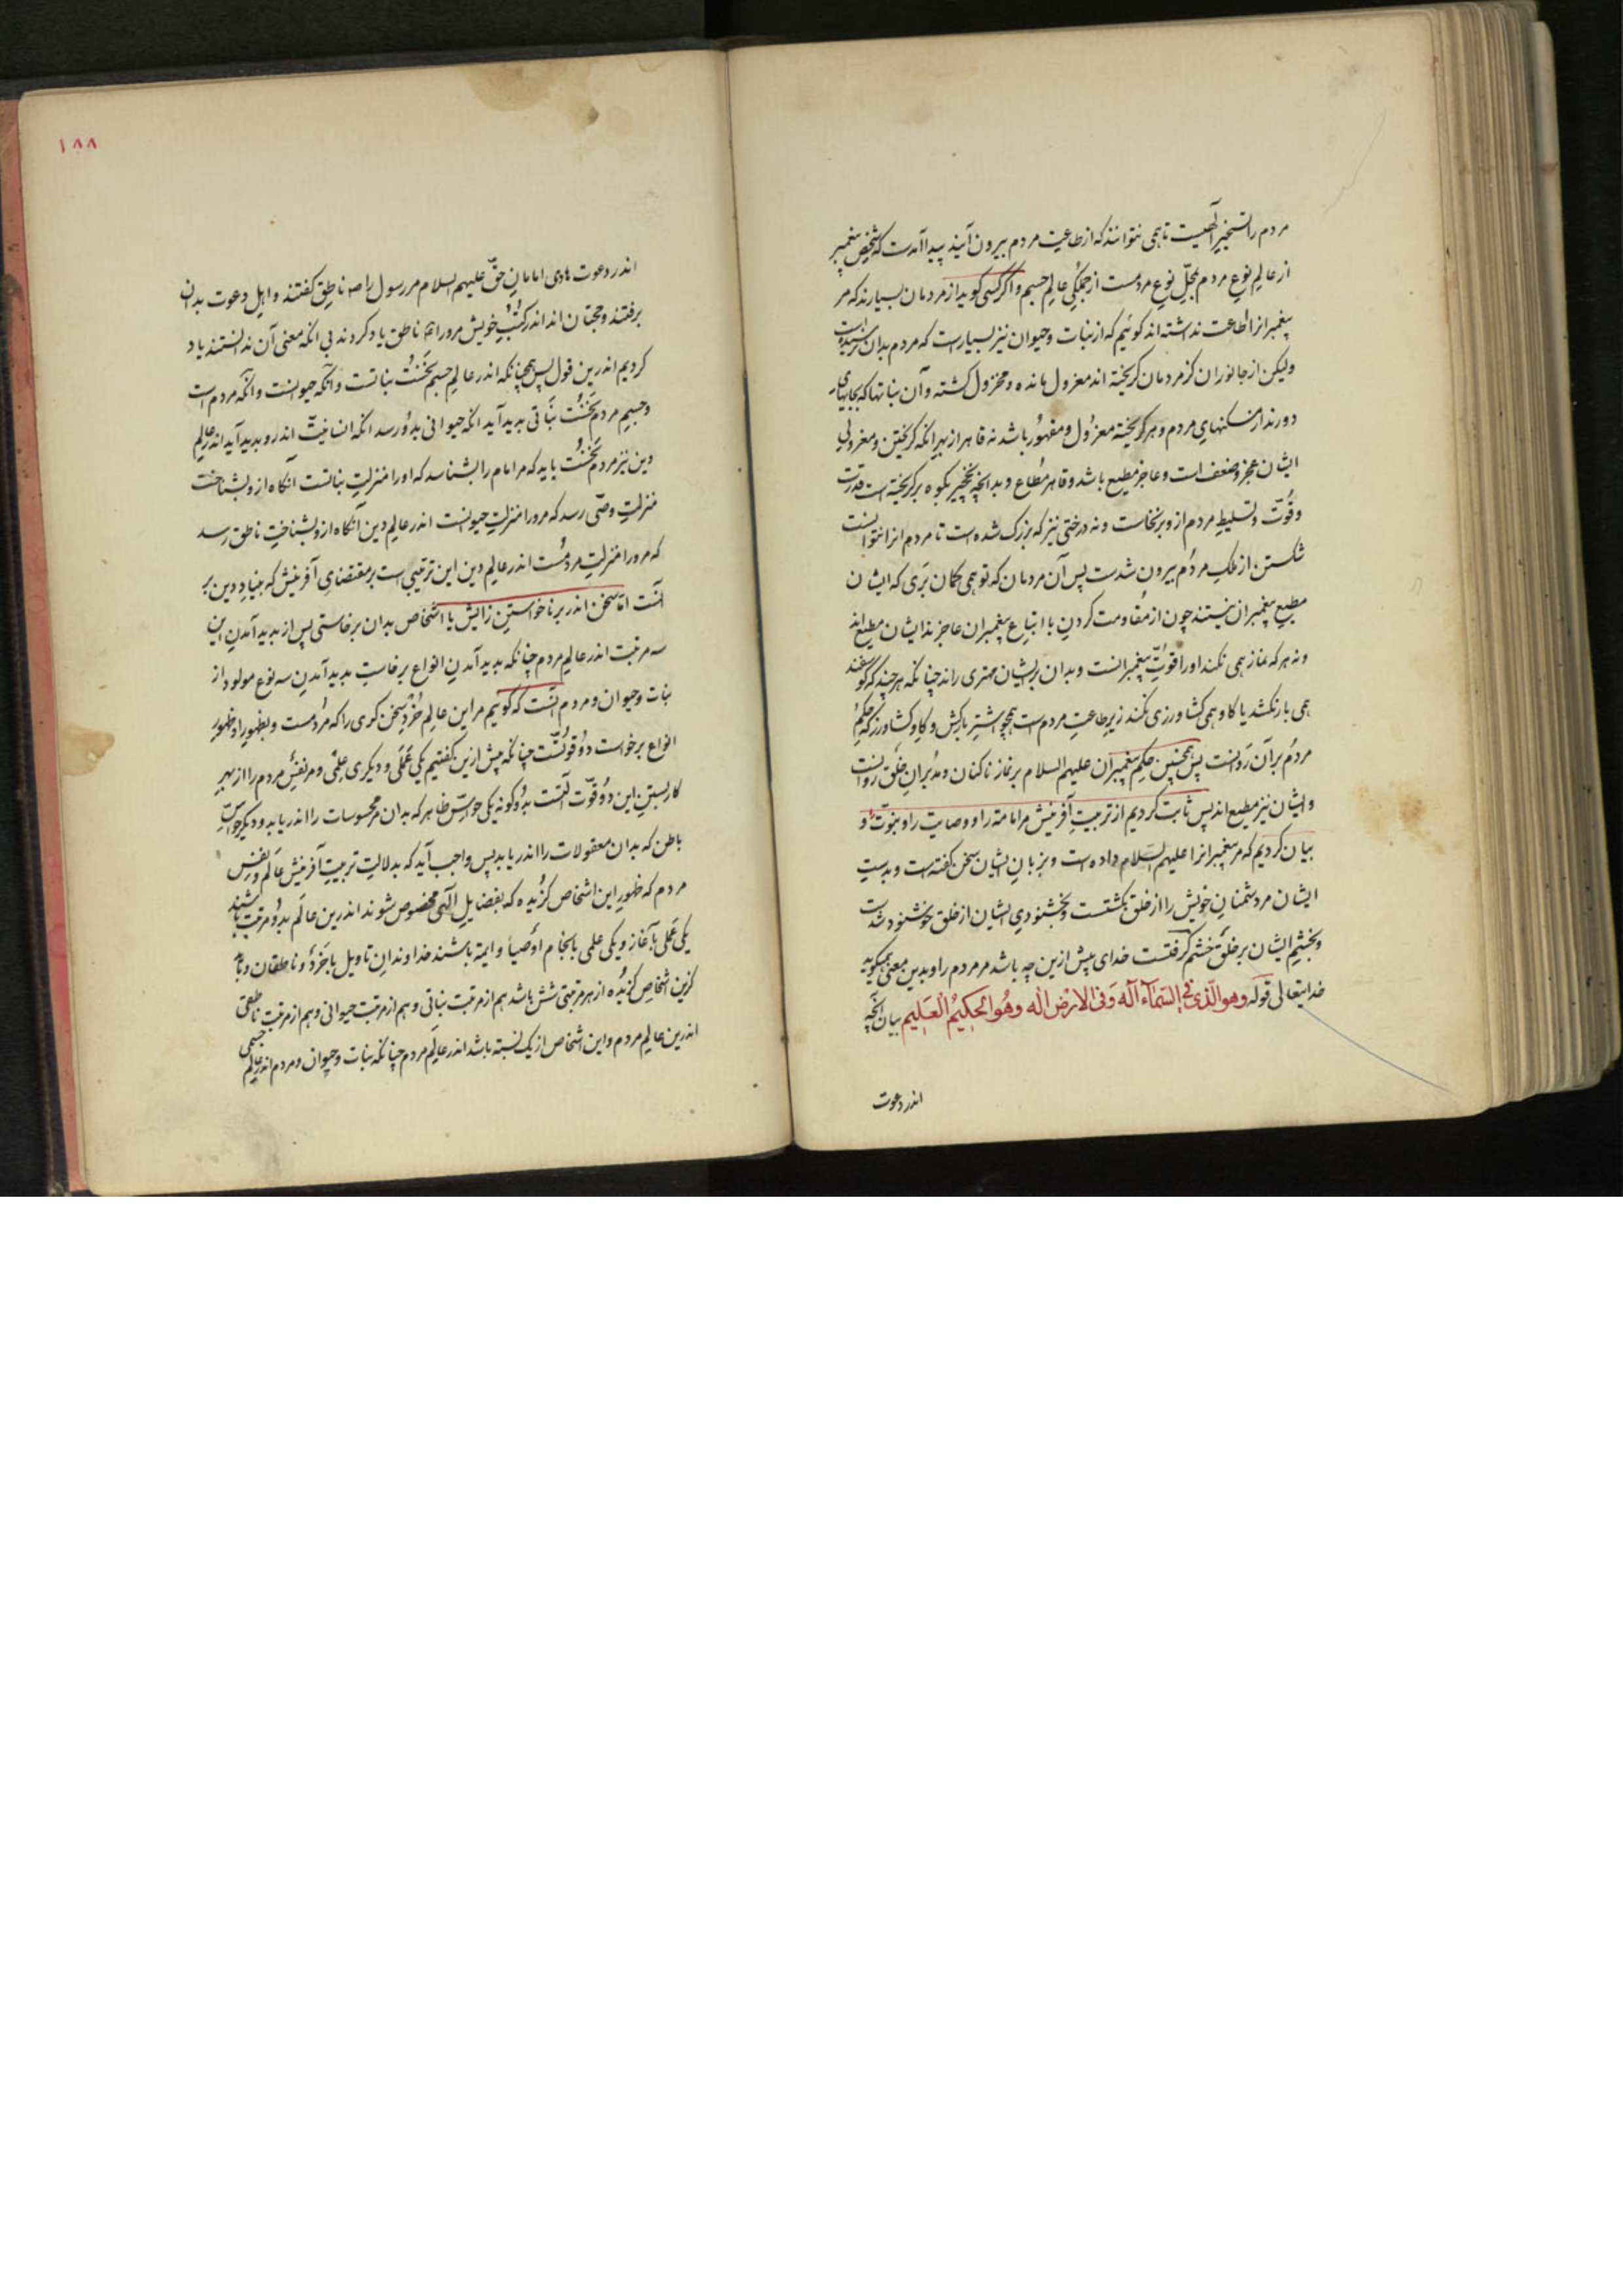 مردم را تسخیر الهیست تا همی نتوانند که از طاعت مردم بیرون آیند پیدا آمدست که شخص پیغمبر
از عالم نوع مردم بمحل نوع مردمست از جملگی عالم جسم و اگر کسی گوید از مردمان بسیارند که مر
پیغمبرانرا طاعت نداشته‌اند گوئیم که از نبات و حیوان نیز بسیارست که مردم بدان نرسیده است
ولیکن از جانوران کز مردمان گریخته‌اند معزول مانده و مخزول گشته و آن نباتها که بجایهای
دورند از مسکنهای مردم و هر گریخته معزول و مقهور باشد نه قاهر از بهر آنکه گریختن و معزولی
ایشان عجز و ضعف است و عاجز مطیع باشد و قاهر مطاع و بدانچه نخچیر بکوه بر گریخته است قدرت
و قوّت و تسلیط مردم ازو برنخاست و نه درختی نیز که بزرگ شده است تا مردم انرا نتوانست
شکستن از ملک مردم بیرون شدست پس آن مردمان که تو همی گمان بری که ایشان
مطیع پیغمبران نیستند چون از مقاومت کردن با اتباع پیغمبران عاجزند ایشان مطیع‌اند
و نه هر که نماز همی نکند او را قوّت پیغمبرانست و بدان بر ایشان مهتری راند چنانکه هر چند که گوسفند
همی بار نکشد یا گاو همی کشاورزی نکند زیر طاعت مردم است همچو اشتر بارکش و گاو کشاورز که حکم
مردم بر آن روانست پس همچنین حکم پیغمبران علیهم السلام بر نماز ناکنان و مدبران خلق روانست
و ایشان نیز مطیع‌اند پس ثابت کردیم از ترتیب آفرینش مر امامت را و وصایت را و نبوّت و
بیان کردیم که مر پیغمبرانرا علیهم السّلام داده است و بزبان ایشان سخن گفته است و بدست
ایشان مر دشمنان خویش را از خلق بکشتست و بخشنودی ایشان از خلق خوشنود شدست
و بخشم ایشان بر خلق خشم گرفتست خدای پیش ازین چه باشد مر مردم را و بدین معنی همیگوید
خدایتعالی قوله وهو الّذی فی السّمآء اله وفی الارض اله وهو الحکیم العلیم بیان آنچه
اندر دعوت
١٨٨
اندر دعوت هادی امامان حقّ علیهم السلام مر رسول را صه ناطق گفتند و اهل دعوت بدان
برفتند و حجتان اندر کتب خویش مرورا ناطق یاد کردند بی آنکه معنی آن ندانستند یاد
کردیم اندرین قول پس همچنانکه اندر عالم جسم نخست نباتست و آنگه حیوانست و آنگه مردم است
و جسم مردم نخست نباتی پدید آید آنگه حیوانی بدو رسد آنگه انسانیّت اندرو پدید آید اندر عالم
دین نیز مردم نخست باید که مر امام را بشناسد که او را منزلت نباتست آنگاه ازو بشناخت
منزلت وصّی رسد که مرورا منزلت حیوانست اندر عالم دین آنگاه ازو بشناخت ناطق رسد
که مرورا منزلت مردمست اندر عالم دین این ترتیبی است بر مقتضای آفرینش که بنیاد دین بر
آنست امّا سخن اندر برناخواستن زایش با اشخاص بدان برخاستی پس از پدید آمدن این
سه مرتبت اندر عالم مردم چنانکه پدید آمدن انواع برخاست پدید آمدن سه نوع مولود از
نبات و حیوان و مردم آنست که گوییم مر این عالم خُرد سخن‌گوی را که مردمست و بظهور او ظهور
انواع برخواست دو قوّتست چنانکه پیش ازین گفتیم یکی عملی و دیگری علمی و مر نفس مردم را از بهر
کار بستن این دو قوّت آلتست بدو گونه یکی حواسّ ظاهر که بدان مر محسوسات را اندر یابد و دیگر حواسّ
باطن که بدان معقولات را اندر یابد پس واجب آید که بدلالت ترتیب آفرینش عالم و نفس
مردم که ظهور این اشخاص گزیده که بفضایل الهی مخصوص شوند اندرین عالم بدو مرتبت باشند
یکی عملی بآغاز و یکی علمی بانجام اوصیا و ایمه باشند خداوندان تاویل باخره و ناطقان
کزین اشخاص گزیده از هر مرتبتی شش باشد هم از مرتبت نباتی و هم از مرتبت حیوانی و هم از مرتبت ناطقی
اندرین عالم مردم و این اشخاص از یک نسبته باشد اندر عالم مردم چنانکه نبات و حیوان و مردم اندر عالم جسمی